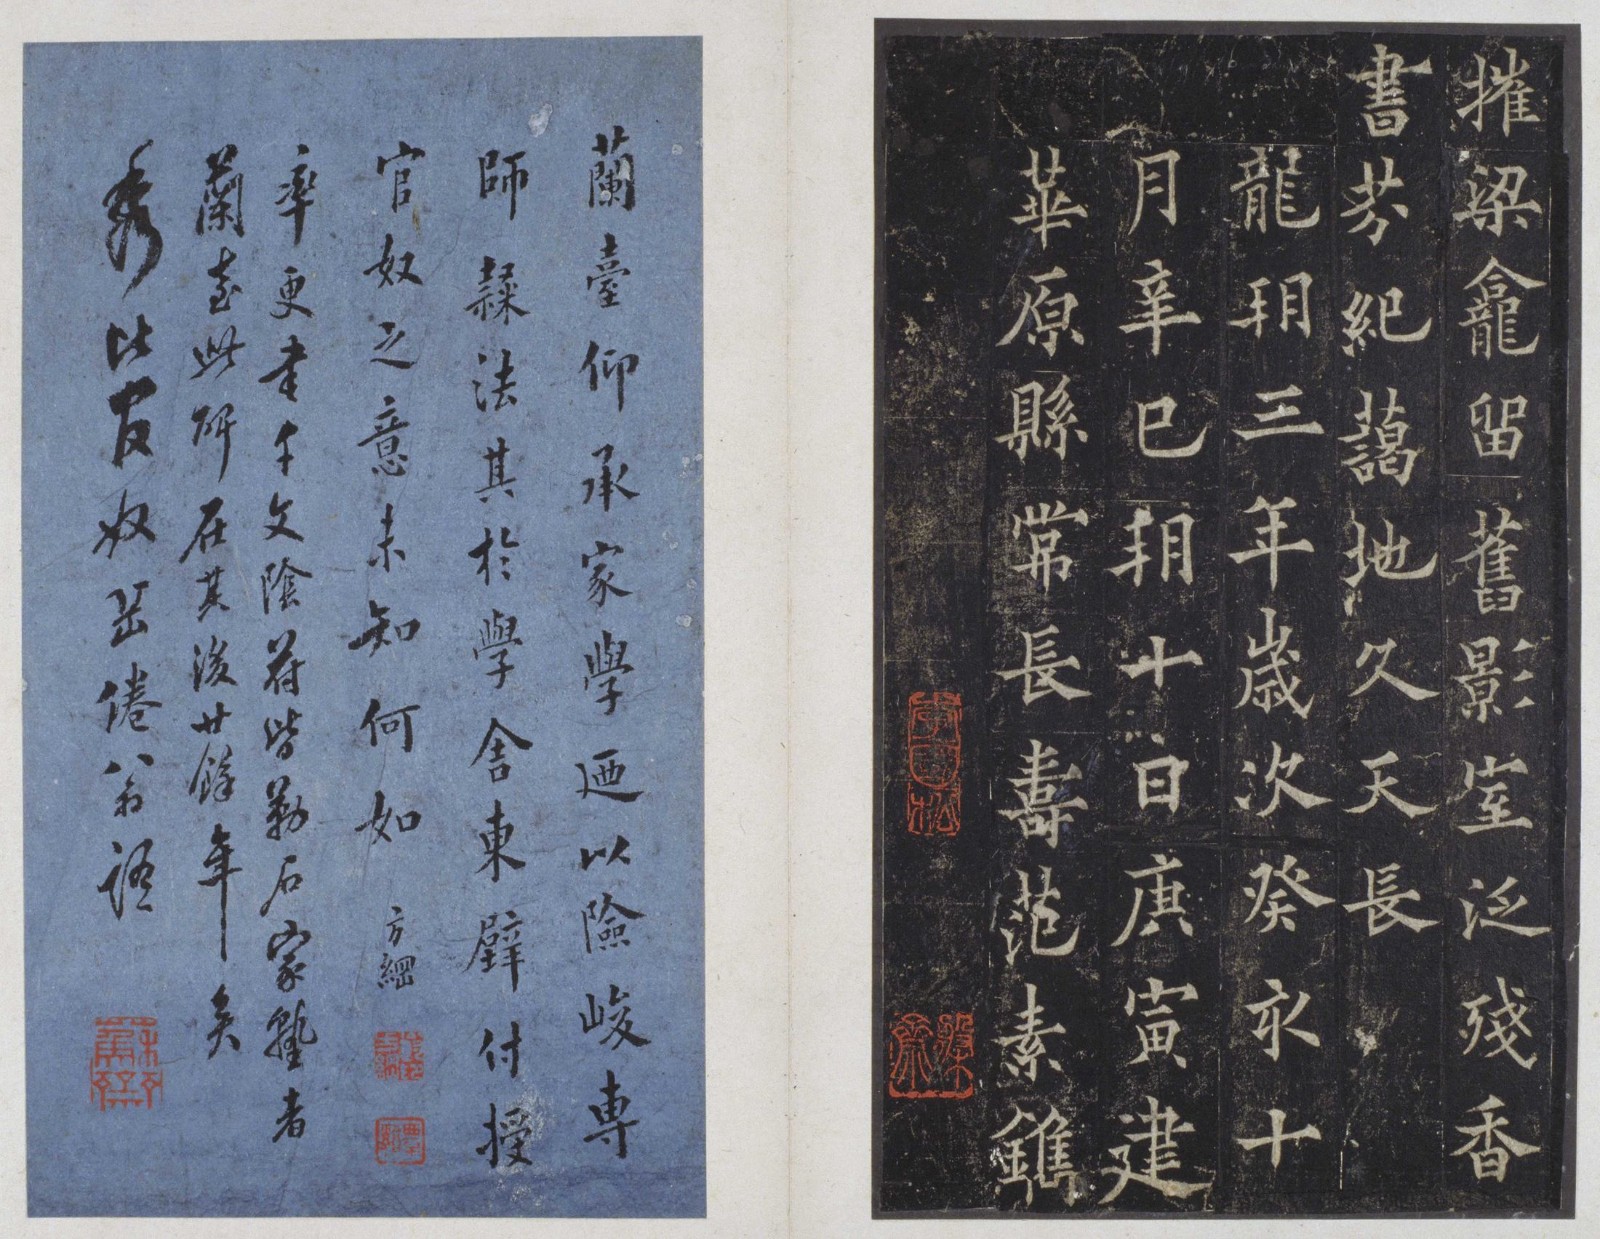 摧梁龕留舊影室泛殘香
書芬紀藹地久天長
龍朔三年歲次癸亥十
月辛巳朔十日庚寅建
華原縣常長壽范素鐫
蘭臺仰承家學迺以險峻專
師隸法其於學舍東壁付授
官奴之意未知何如 方綱
率更書千文陰符皆勒石家塾者
蘭臺此碑在其後廿餘年矣
比官奴
語